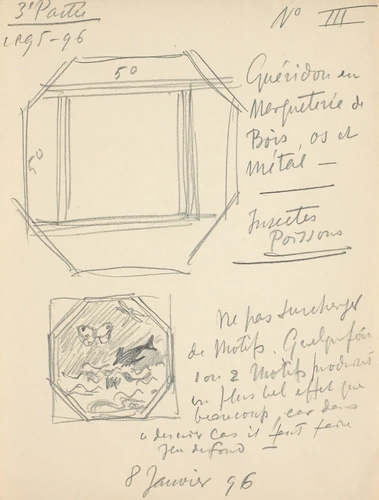 3e Partie
N° III
LR95-96
50
50
Guéridon en
Marqueterie de
Bois, os et
Métal —
Insectes
Poissons
Ne pas surcharger
de Motifs. Quelquefois
1 ou 2 Motifs produisent
un plus bel effet que
beaucoup, car dans
ce dernier cas il faut faire
jeu de fond —
8 Janvier 96